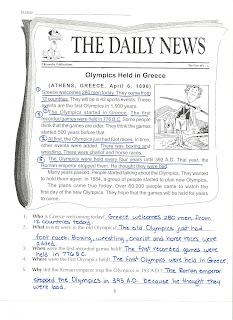 THE DAILY NEWS
Olympics Held in Greece
(ATHENS, GREECE, April 6, 1896)
Greece welcomes 280 men today. They come from
12 countries. They will be in 43 sports events. These
events are the first Olympics in 1,500 years.
The Olympics started in Greece. The first
recorded games were held in 776 B.C. Some people
think that the games are older. They think the games
started 500 years before that.
At first, the Olympics just had foot races. In time,
other events were added. There was boxing and
wrestling. There were chariot and horse races.
The Olympics were held every four years until 393 A.D. That year, the
Roman emperor stopped them. He thought they were bad.
Many years passed. People started talking about the Olympics. They wanted
to hold them again. In 1894, a group of people started to plan new Olympics.
The plans came true today. Over 60,000 people came to watch
the first day of the new Olympics. They hope the games never stop.
1. Who is Greece welcoming today? Greece welcomes 280 men from
12 countries today.
2. What events were in the old Olympics? The old Olympics just had
foot race. Boxing, wrestling, chariot and horse races were
added.
3. When were the first recorded games held? The first recorded games were
held in 776 B.C.
4. Where were the first Olympics held? The first Olympics were held in Greece.
5. Why did the Roman emperor stop the Olympics in 393 A.D.? The Roman emperor
stopped the Olympics in 393 A.D. because he thought they
were bad.